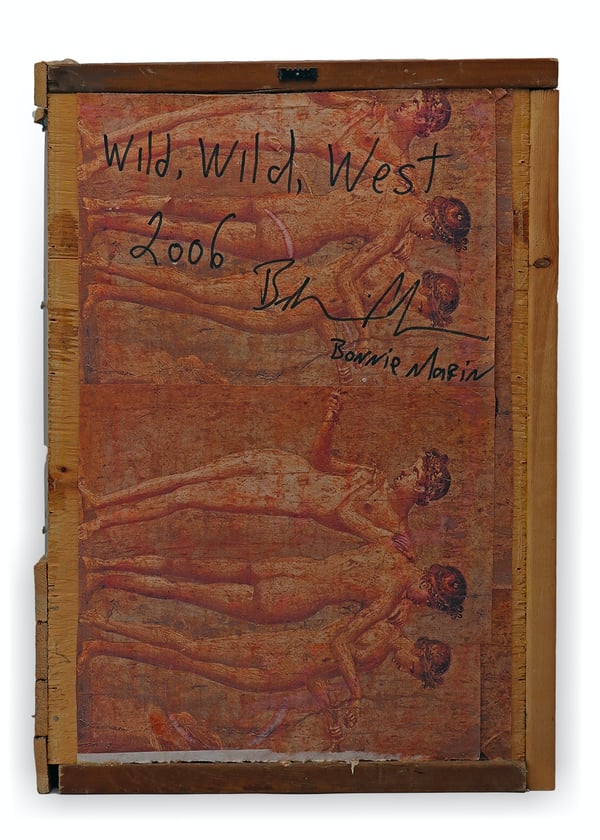 Wild, Wild, West
2006
Bonnie Marin